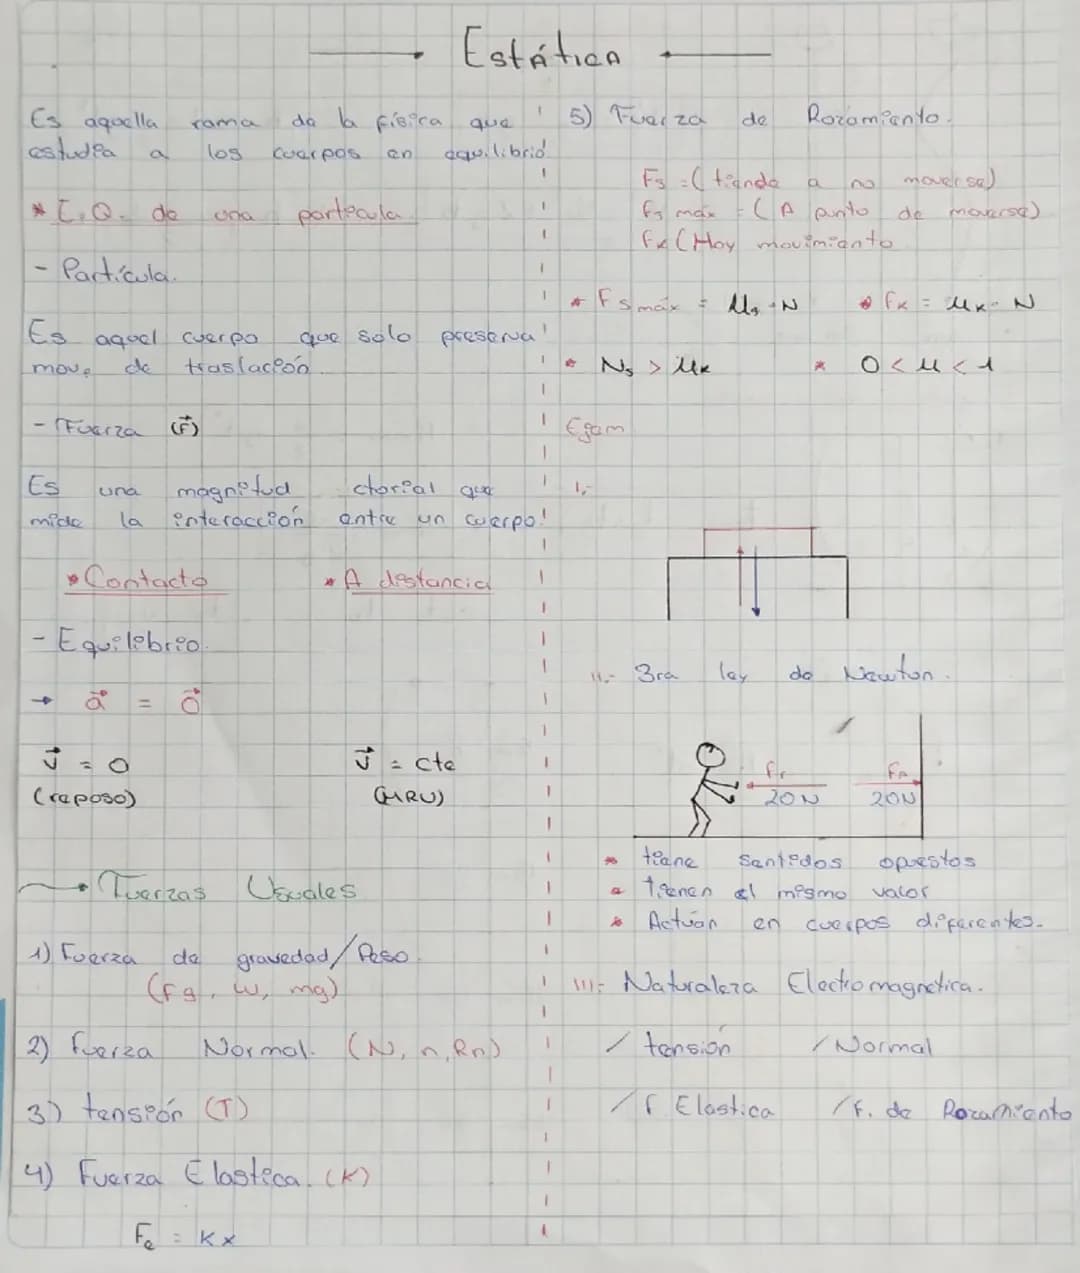 Estática
Es aquella rama de la física que
estudia a los cuerpos en equilibrio
* E.Q. de una partícula
- Partícula.
Es aquel cuerpo que solo preserva
mov. de traslación
- Fuerza (F⃗)
Es una magnitud ctorial que
mide la interacción entre un cuerpo.
* Contacto * A distancia
- Equilibrio.
→ a⃗ = 0⃗
v⃗ = 0 v⃗ = cte
(reposo) (MRU)
→ Fuerzas Usuales
1) Fuerza de gravedad/Peso.
(Fg, w, mg)
2) Fuerza Normal. (N, n, Rn)
3) tensión (T)
4) Fuerza Elastica. (K)
Fe = Kx
5) Fuerza de Rozamiento.
Fs = (tiende a no moverse)
fs máx = (A punto de moverse)
fk (Hay movimiento
* Fs máx = μs · N * fk = μk · N
* Ns > μk * 0 < μ < 1
Ejem
I.-
II.- 3ra ley de Newton.
Fr 20N 20N
* tiene sentidos opuestos
* tienen el mismo valor
* Actúan en cuerpos diferentes.
III.- Naturaleza Electromagnética.
/ tensión / Normal
/ F Elastica / F. de Rozamiento